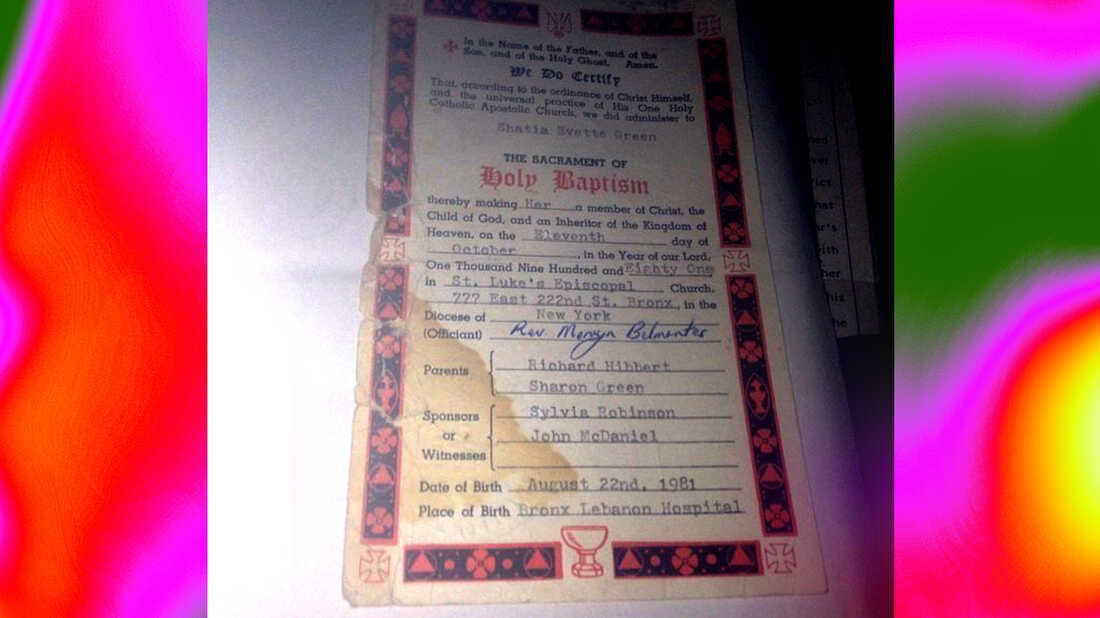 In the Name of the Father, and of the
Son, and of the Holy Ghost. Amen.
We Do Certify
That, according to the ordinance of Christ Himself,
and the universal practice of His One Holy
Catholic Apostolic Church, we did administer to
Shatia Evette Green
THE SACRAMENT OF
Holy Baptism
thereby making Her a member of Christ, the
Child of God, and an Inheritor of the Kingdom of
Heaven, on the Eleventh day of
October, in the Year of our Lord,
One Thousand Nine Hundred and Eighty One
in St. Luke's Episcopal Church,
777 East 222nd St. Bronx, in the
Diocese of New York
(Officiant) Rev Mervyn Belmontes
Parents Richard Hibbert
Sharon Green
Sponsors Sylvia Robinson
or John McDaniel
Witnesses
Date of Birth August 22nd, 1981
Place of Birth Bronx Lebanon Hospital